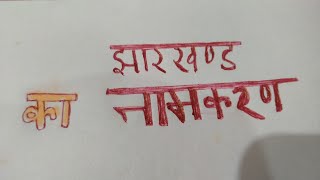 झारखण्ड
का नामकरण